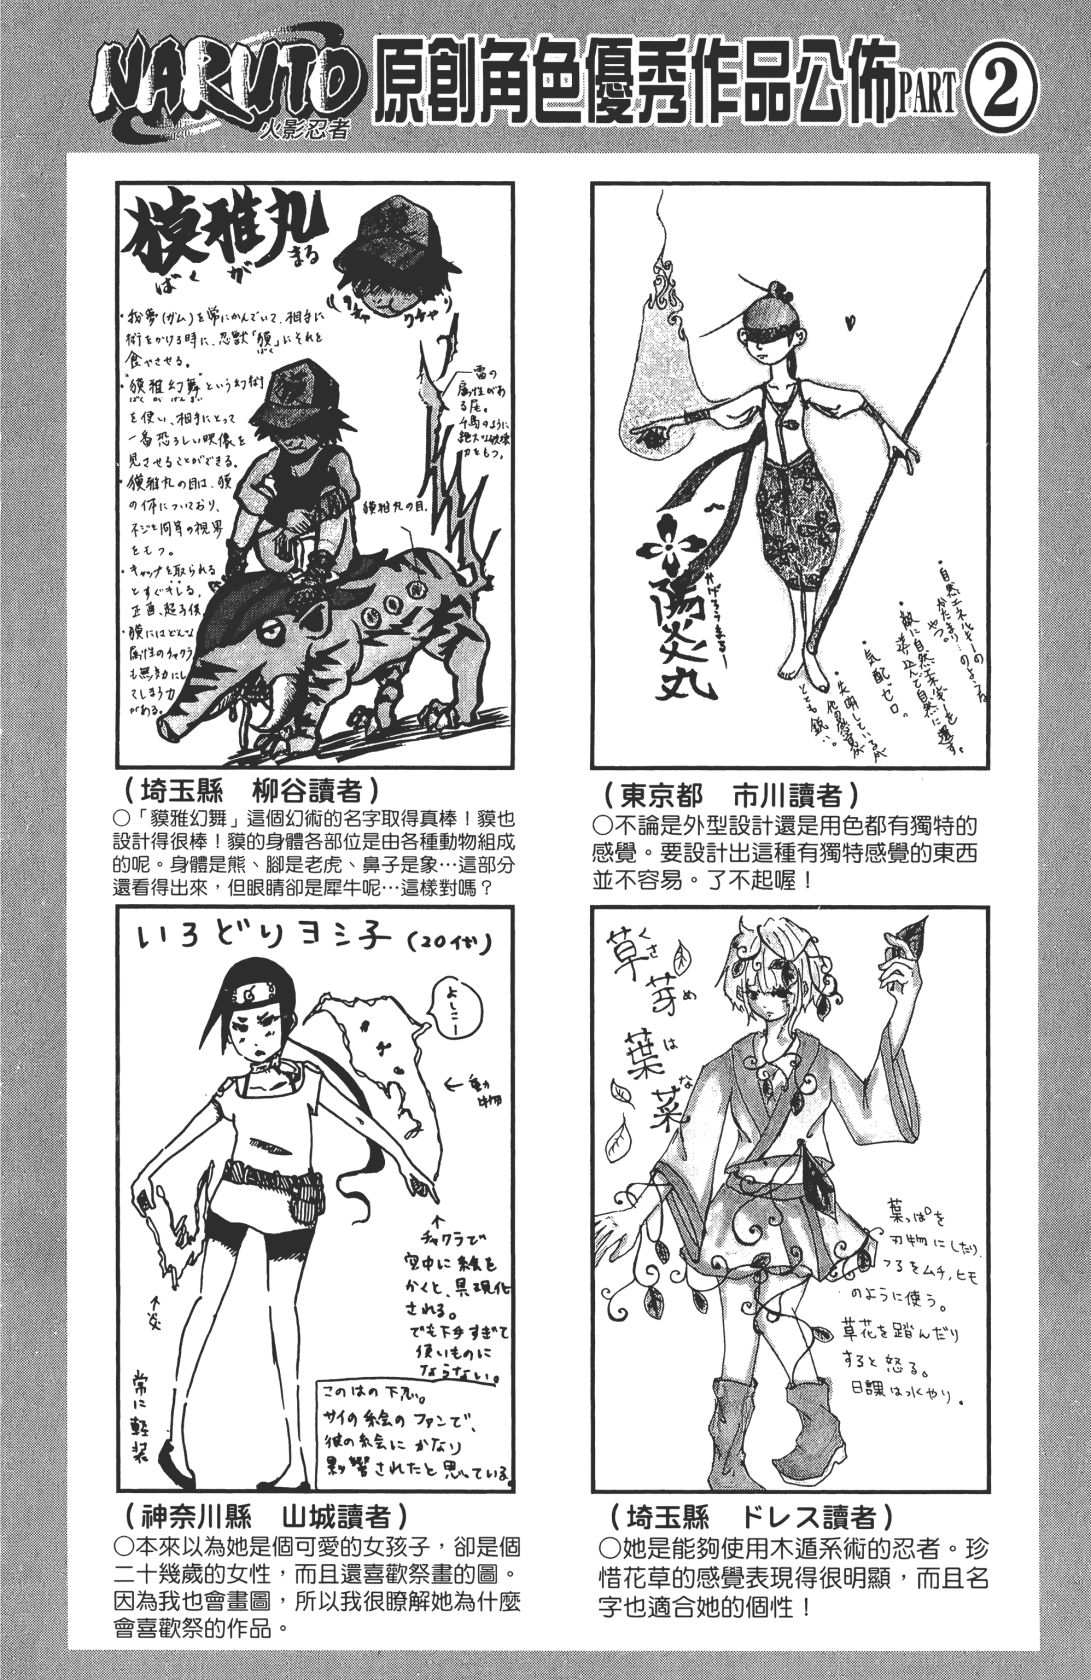 NARUTO
火影忍者
原創角色優秀作品公佈PART②
獏雅丸
ばくがまる
クチャ
クチャ
・我夢(ガム)を常にかんでいて、相手に
術をかける時に、忍獣「獏」にそれを
ばく
食べさせる。
・"獏雅幻舞"という幻術
ばくがげんぶ
を使い、相手にとって
一番恐ろしい映像を
見させることができる。
・獏雅丸の目は、獏
の体についており、
ネジと同等の視界
をもつ。
・キャップを取られる
とすぐキレる。
正直、超子供
・獏にはどんな
属性のチャクラ
も無効にし
てしまう力
がある。
雷の
属性があ
る尾。
千鳥のように
絶大な破壊
力をもつ。
獏雅丸の目。
(埼玉縣 柳谷讀者)
○「貘雅幻舞」這個幻術的名字取得真棒！貘也
設計得很棒！貘的身體各部位是由各種動物組成
的呢。身體是熊、腳是老虎、鼻子是象…這部分
還看得出來，但眼睛卻是犀牛呢…這樣對嗎？
陽炎丸
かげろうまる
・自然エネルギーの
かたまり…のような
やつ。
・敵に自然エネルギーを
送り込んで自然に還す。
・気配ゼロ。
・失明しているが
他の感覚が
とても鋭い。
(東京都 市川讀者)
○不論是外型設計還是用色都有獨特的
感覺。要設計出這種有獨特感覺的東西
並不容易。了不起喔！
いろどりヨシ子(20代)
よしこー
←動物
↑
チャクラで
空中に絵を
かくと、具現化
される。
でも下手すぎて
使いものに
ならない。
常に軽装
このはの下忍。
サイの絵のファンで、
彼の絵にかなり
影響されたと思っている。
(神奈川縣 山城讀者)
○本來以為她是個可愛的女孩子，卻是個
二十幾歲的女性，而且還喜歡祭畫的圖。
因為我也會畫圖，所以我很瞭解她為什麼
會喜歡祭的作品。
草芽葉菜
くさめはな
葉っぱを
刃物にしたり、
つるをムチ、ヒモ
のように使う。
草花を踏んだり
すると怒る。
日課は水やり。
(埼玉縣 ドレス讀者)
○她是能夠使用木遁系術的忍者。珍
惜花草的感覺表現得很明顯，而且名
字也適合她的個性！